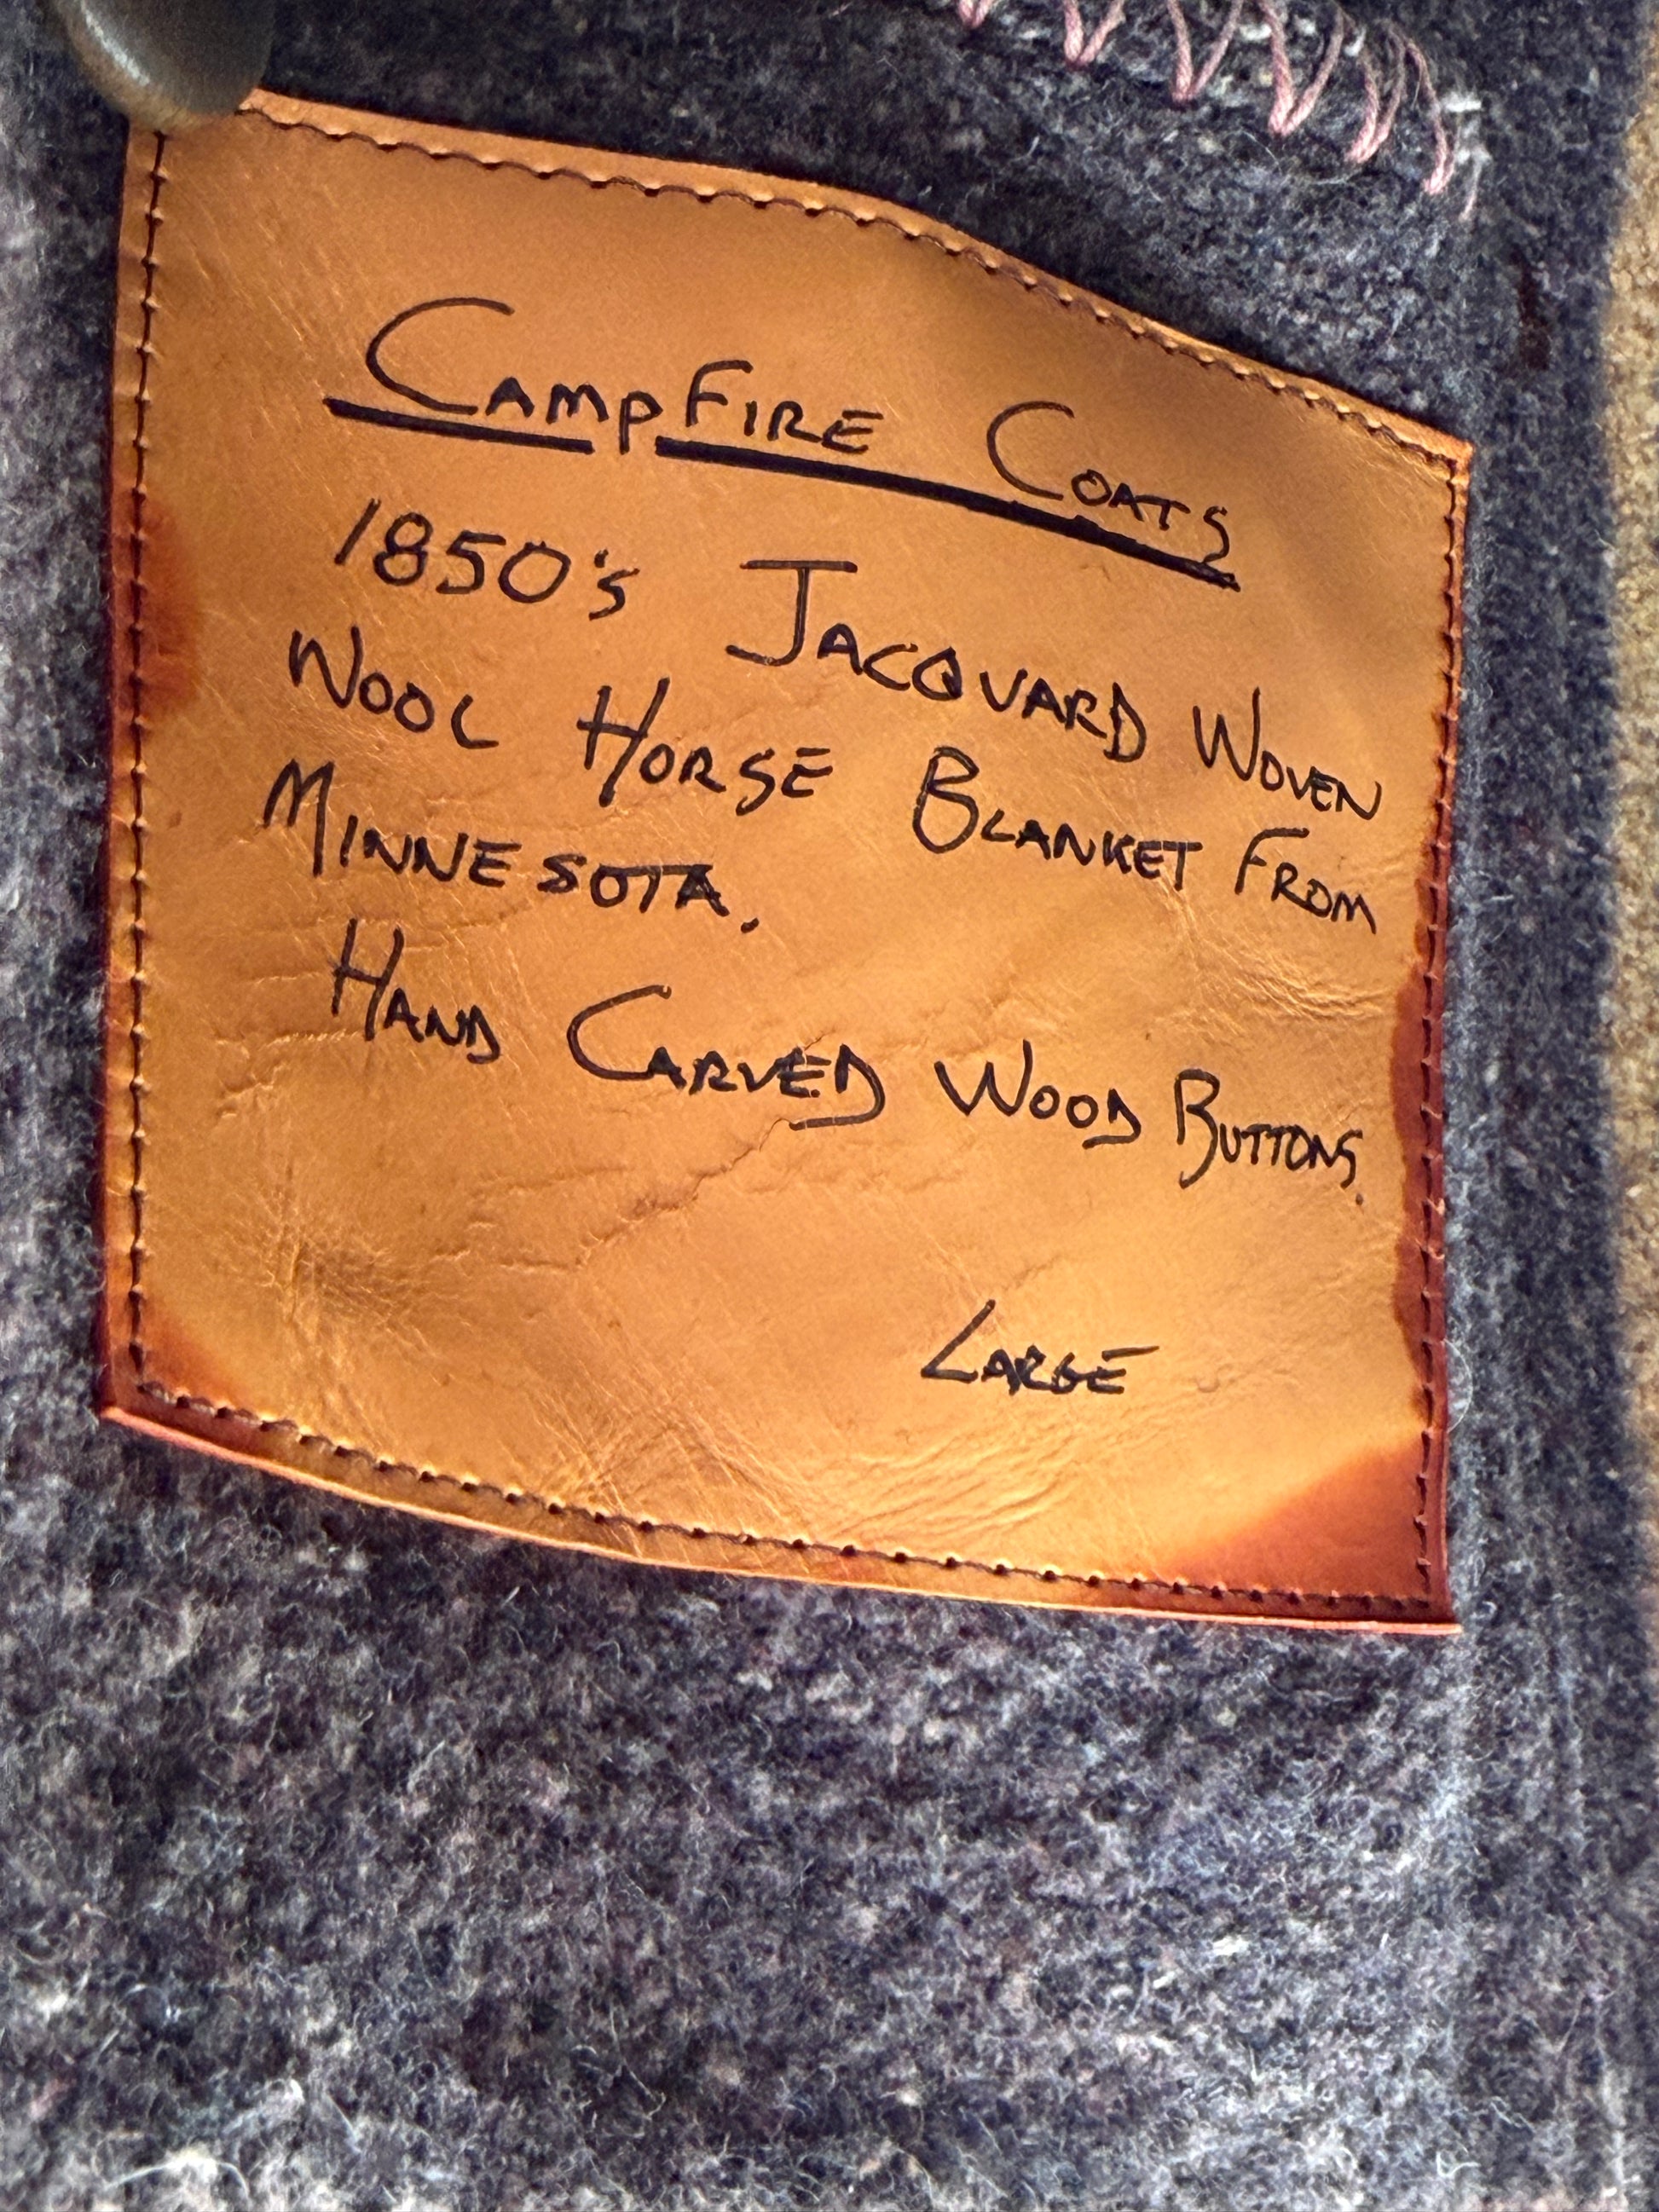 CAMPFIRE COATS
1850's JACQUARD WOVEN
WOOL HORSE BLANKET FROM
MINNESOTA.
HAND CARVED WOOD BUTTONS.
LARGE